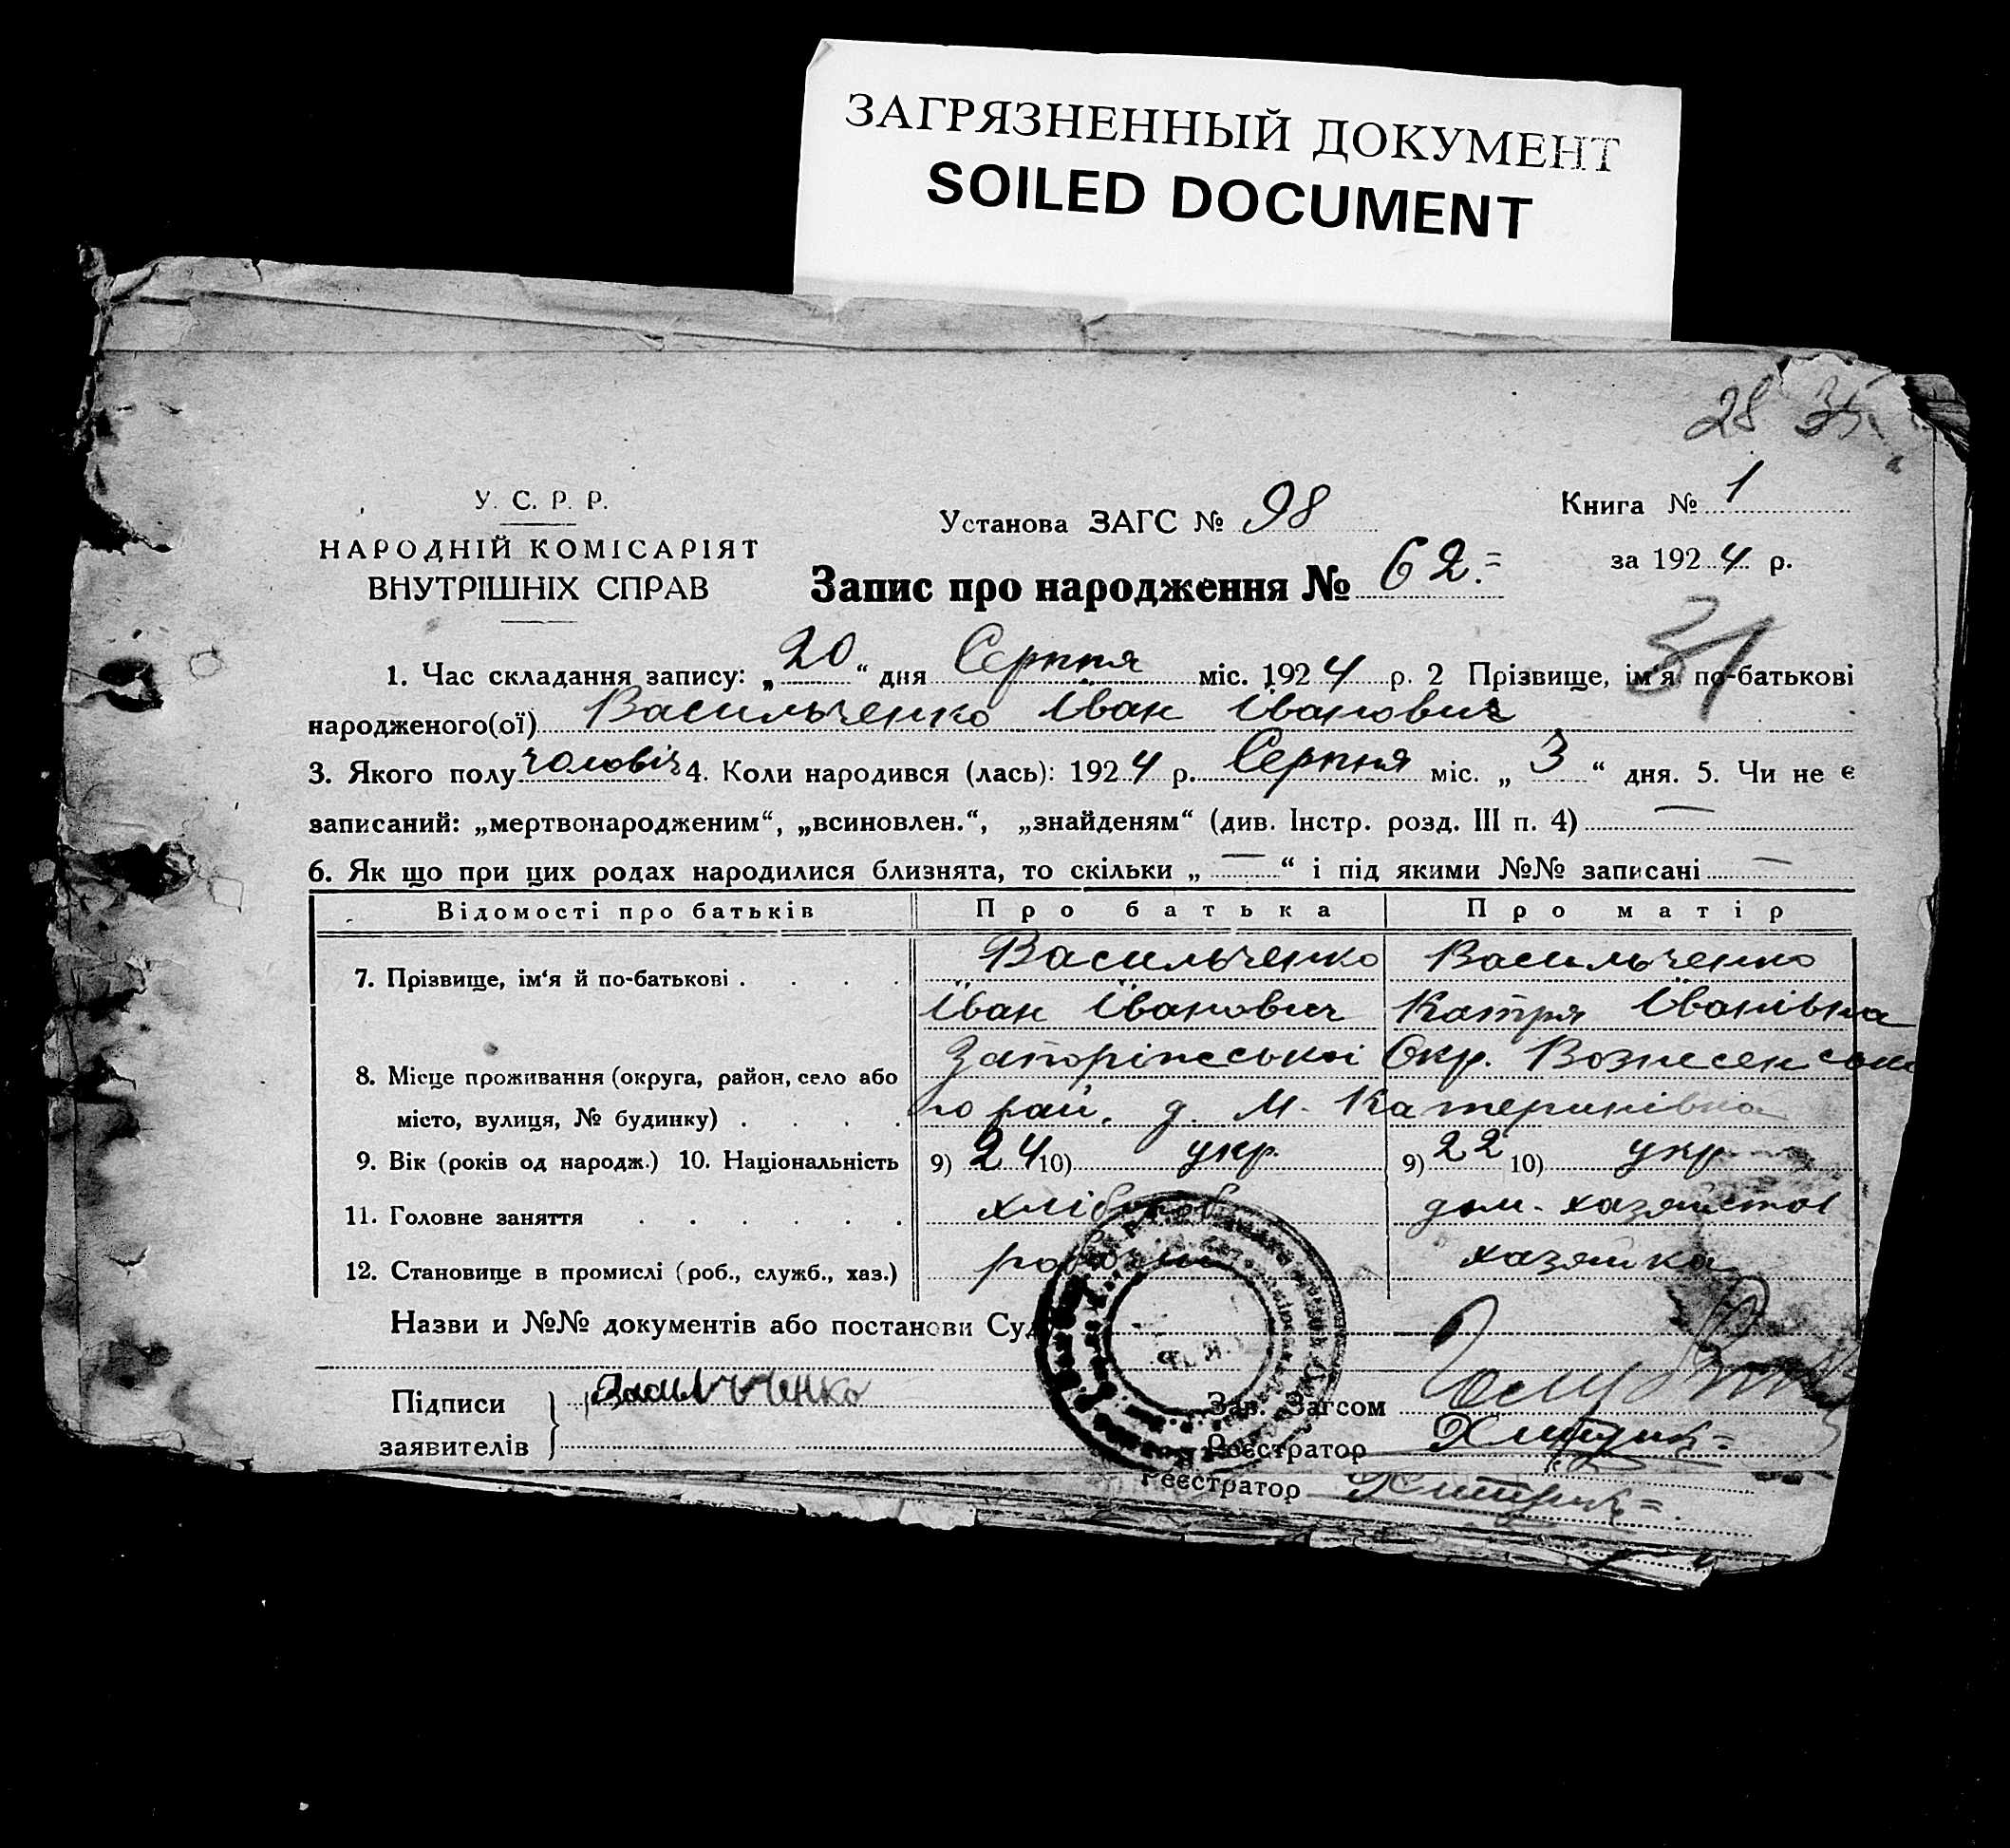 ЗАГРЯЗНЕННЫЙ ДОКУМЕНТ
SOILED DOCUMENT
28 35
У. С. Р. Р.
НАРОДНІЙ КОМІСАРІЯТ
ВНУТРІШНІХ СПРАВ
Установа ЗАГС № 98
Запис про народження № 62.=
Книга № 1
за 1924 р.
31
1. Час складання запису: „20“ дня Серпня міс. 1924 р. 2 Прізвище, ім'я по-батькові
народженого(ої) Васильченко Іван Іванович
3. Якого полу чоловіч 4. Коли народився (лась): 1924 р. Серпня міс. „3“ дня. 5. Чи не є
записаний: „мертвонародженим“, „всиновлен.“, „знайденям“ (див. Інстр. розд. III п. 4) —
6. Як що при цих родах народилися близнята, то скільки „—“ і під якими №№ записані —
Відомості про батьків Про батька Про матір
7. Прізвище, ім'я й по-батькові . . . . Васильченко Васильченко
Іван Іванович Катря Іванівна
8. Місце проживання (округа, район, село або Запоріжської Окр. Вознесенсько
місто, вулиця, № будинку) . . . . го рай. д. М. Катеринівка
9. Вік (років од народж.) 10. Національність 9) 24 10) укр. 9) 22 10) укр
11. Головне заняття . . . . . . хлібороб дом. хазяйство
12. Становище в промислі (роб., служб., хаз.) хазяйка
Назви и №№ документів або постанови Суд
Підписи Васильченко Зав. Загсом
заявителів Реєстратор
Реєстратор